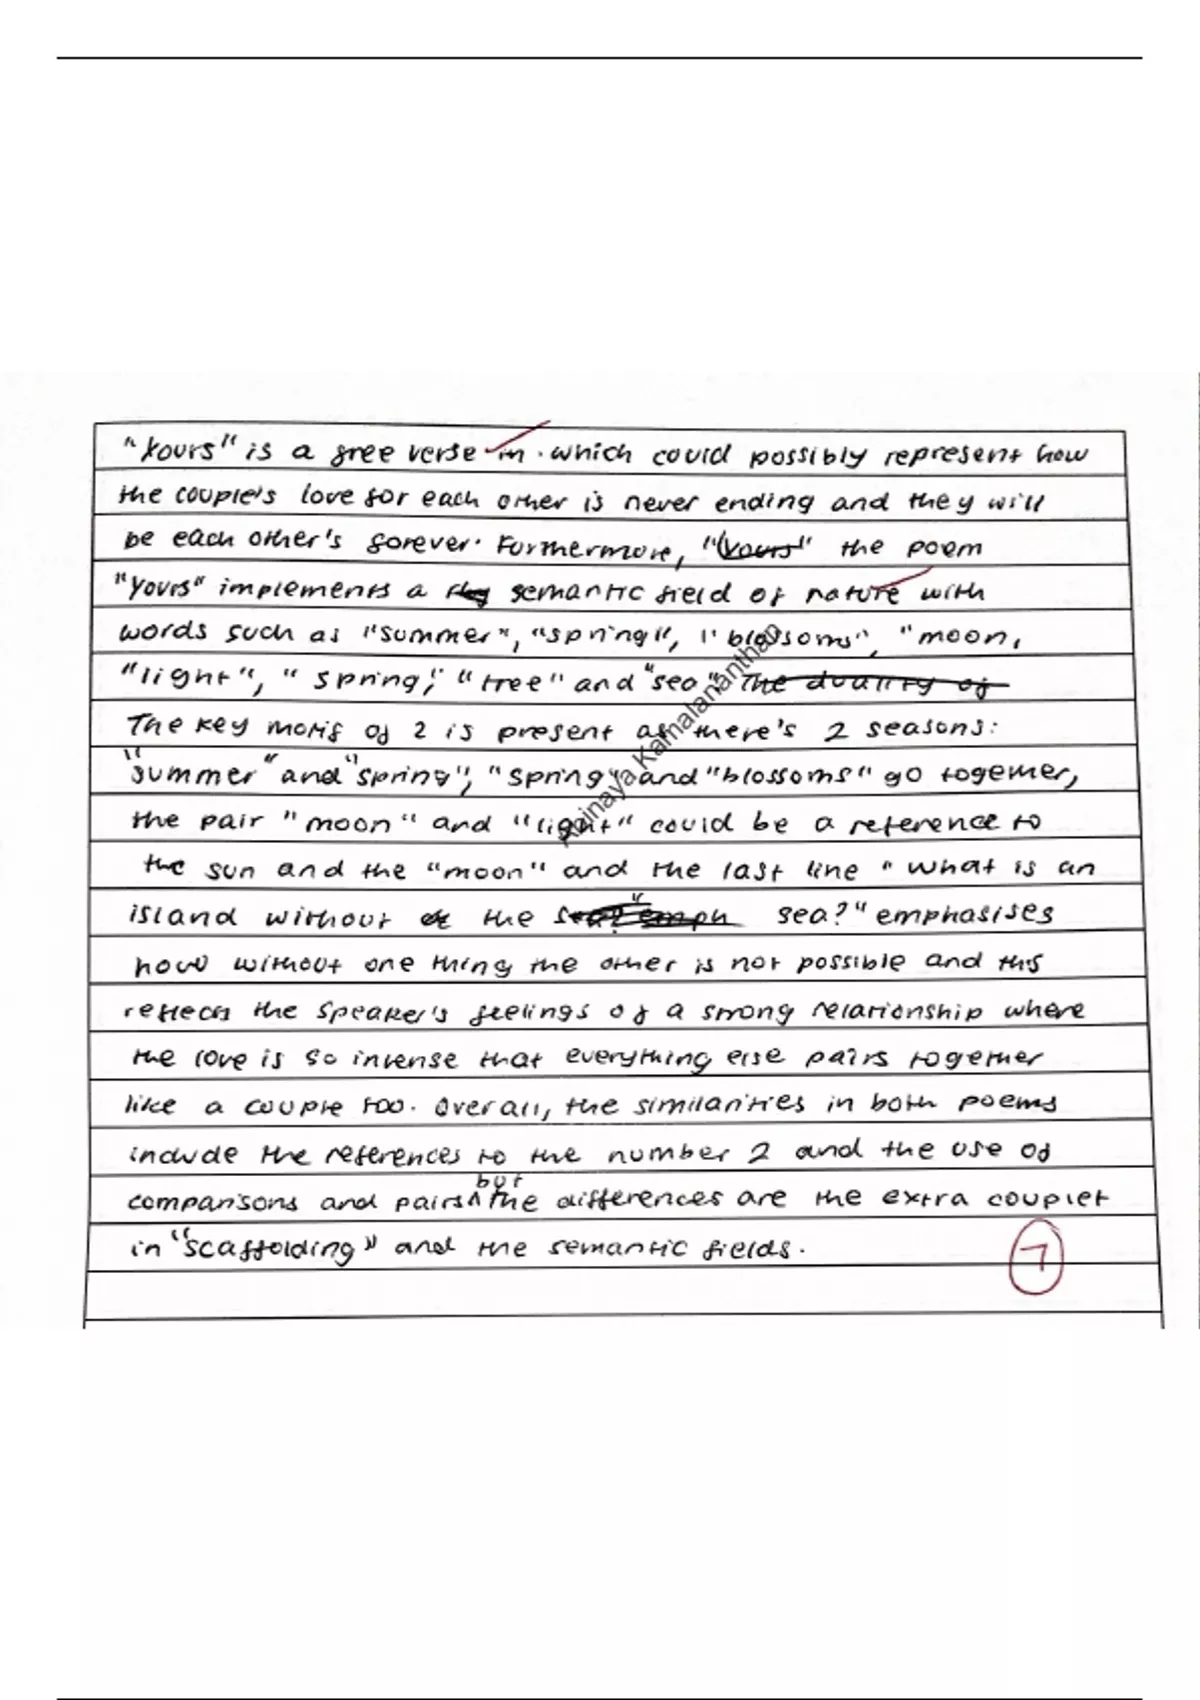 "Yours" is a free verse in. which could possibly represent how
the couple's love for each other is never ending and they will
be each other's forever. Furthermore, "(yours" the poem
"Yours" implements a semantic field of nature with
words such as "summer", "spring", "blossoms", "moon,
"light", "spring", "tree" and "sea". The duality of
The key motif of 2 is present as there's 2 seasons:
"summer" and "spring", "spring" and "blossoms" go together,
the pair "moon" and "light" could be a reference to
the sun and the "moon" and the last line "what is an
island without the sea?" emphasises
how without one thing the other is not possible and this
reflects the speaker's feelings of a strong relationship where
the love is so intense that everything else pairs together
like a couple too. Overall, the similarities in both poems
include the references to the number 2 and the use of
but
comparisons and pairs ^ the differences are the extra couplet
in "scaffolding" and the semantic fields.
7
Abinaya Kamalananthan